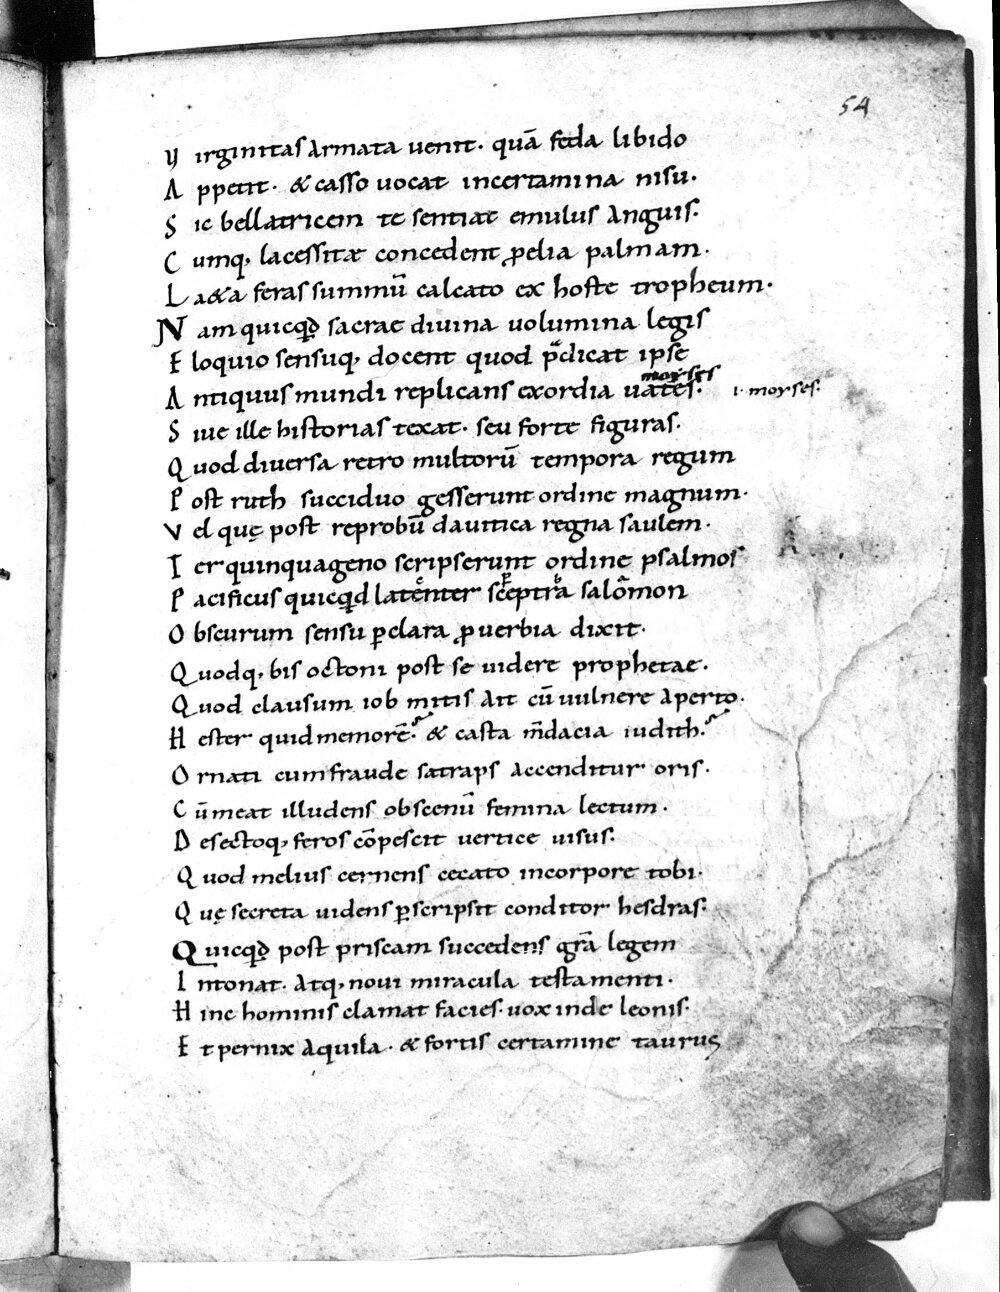 54
Virginitas armata uenit· quā feda libido
Appetit· & casso uocat incertamina nisu·
Sic bellatricem te sentiat emulus anguis·
Cumq, lacessitæ concedent ꝓelia palmam·
La&a feras summū calcato ex hoste tropheum·
Nam quicqđ sacrae diuina uolumina legis
Eloquio sensuq, docent quod p̄dicat ipse
moyses
Antiquus mundi replicans exordia uates· i· moyses·
Siue ille historias texat· seu forte figuras·
Quod diuersa retro multorū tempora regum
Post ruth succiduo gesserunt ordine magnum·
Vel quę post reprobū dauitica regna saulem·
Ter quinquageno scripserunt ordine psalmos
Pacificus quicqđ latenter sceptra salomon
Obscurum sensu p̄clara ꝓuerbia dixit·
Quodq, bis octoni post se uidere prophetae·
Quod clausum iob mitis ait cū uulnere aperto·
Hester quid memorē· & casta m̄dacia iudith·
Ornati cum fraude satraps accenditur oris·
Cū meat illudens obscenū femina lectum·
Desectoq, feros cōpescit uertice uisus·
Quod melius cernens cecato incorpore tobi·
Quę secreta uidens ꝑscripsit conditor hesdras·
Quicqđ post priscam succedens grā legem
Intonat· atq, noui miracula testamenti·
Hinc hominis clamat facies· uox inde leonis·
Et pernix aquila· & fortis certamine taurus